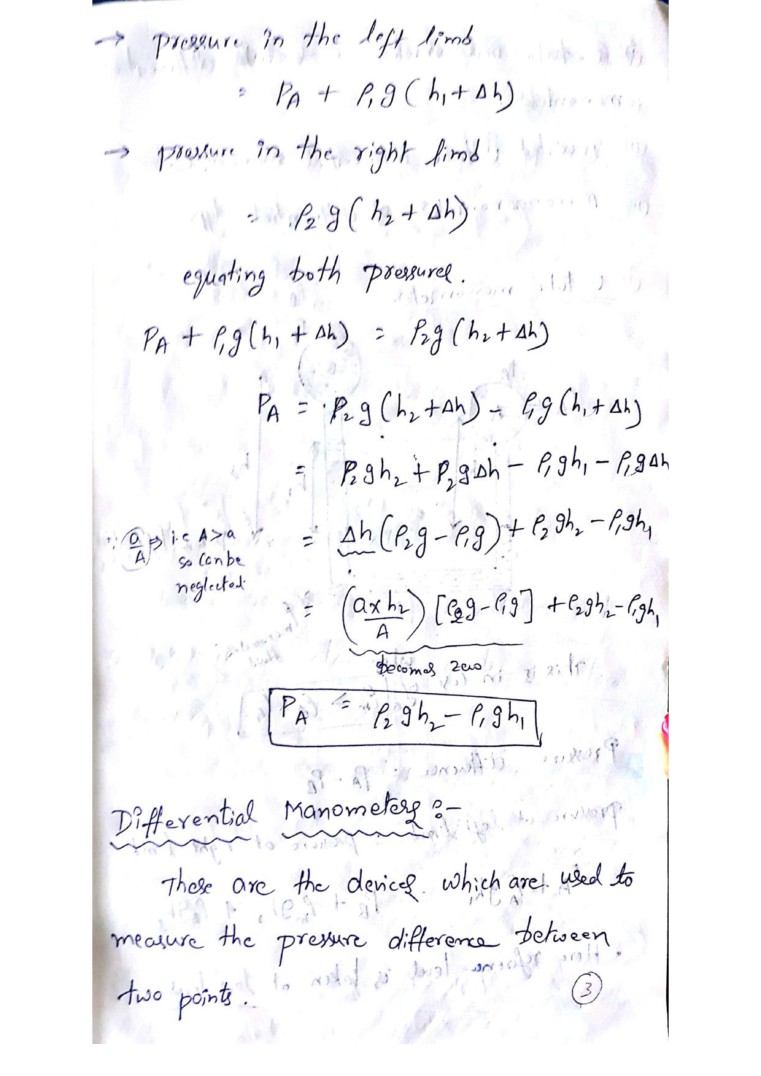 → pressure in the left limb
= PA + ρ1g(h1+Δh)
→ pressure in the right limb:
= ρ2g(h2+Δh)
equating both pressures.
PA + ρ1g(h1 + Δh) = ρ2g(h2+Δh)
PA = ρ2g(h2+Δh) - ρ1g(h1+Δh)
= ρ2gh2 + ρ2gΔh - ρ1gh1 - ρ1gΔh
= Δh(ρ2g-ρ1g) + ρ2gh2 - ρ1gh1
∵ a/A ⇒ i.e A>a
so can be
neglected
= (a×h2/A) [ρ2g-ρ1g] + ρ2gh2-ρ1gh1
becomes zero
PA = ρ2gh2 - ρ1gh1
Differential Manometers :-
These are the devices which are used to
measure the pressure difference between
two points.
3